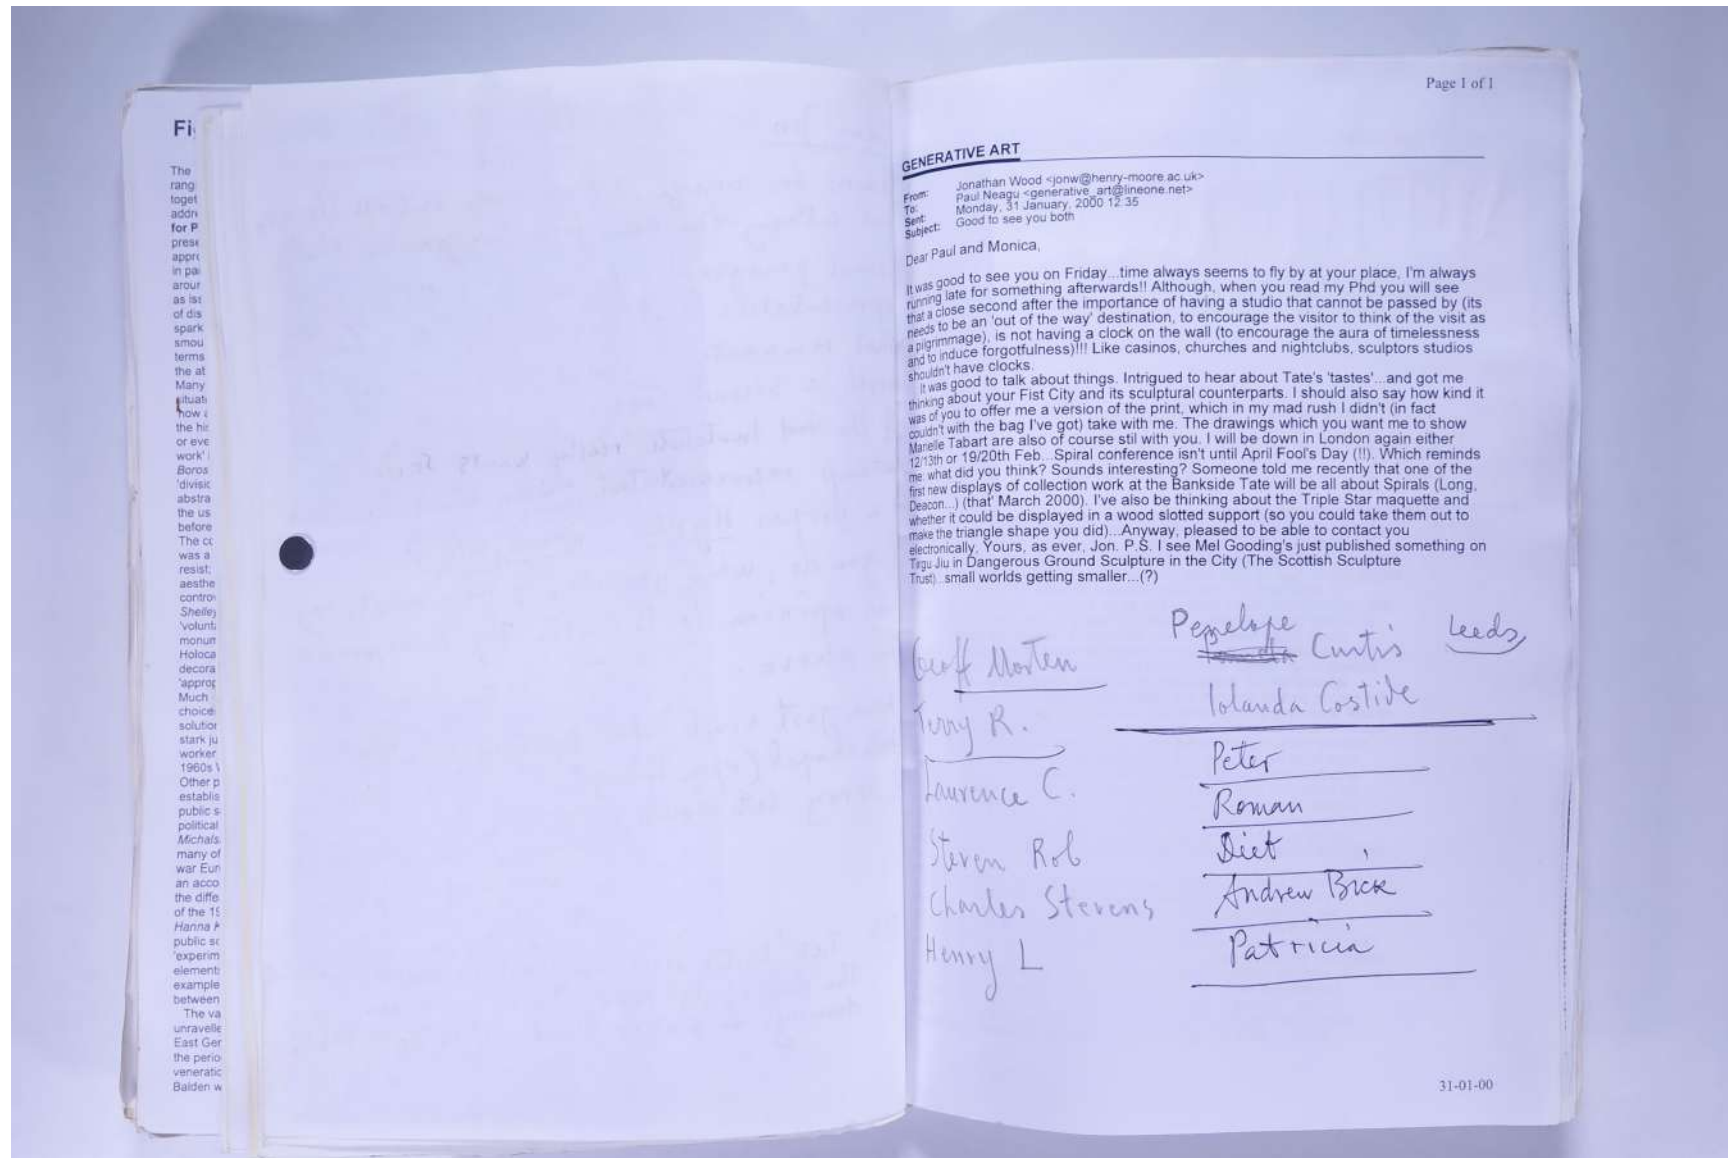 Fi
The
rang
toget
addre
for P
prese
appro
in pai
arour
as iss
of dis
spark
smou
terms
the at
Many
situati
how a
the his
or eve
work' i
Boros
'divisic
abstra
the us
before
The cc
was a
resist;
aesthe
contro
Shelley
'volunt
monun
Holoca
decora
'approp
Much
choice
solution
stark ju
worker
1960s
Other p
establis
public s
political
Michals
many of
war Eur
an acco
the diffe
of the 19
Hanna
public sc
'experim
element
example
between
The va
unravelle
East Ger
the perio
veneratic
Balden w
Page 1 of 1
GENERATIVE ART
From: Jonathan Wood <jonw@henry-moore.ac.uk>
To: Paul Neagu <generative_art@lineone.net>
Sent: Monday, 31 January, 2000 12:35
Subject: Good to see you both
Dear Paul and Monica,
It was good to see you on Friday...time always seems to fly by at your place, I'm always
running late for something afterwards!! Although, when you read my Phd you will see
that a close second after the importance of having a studio that cannot be passed by (its
needs to be an 'out of the way' destination, to encourage the visitor to think of the visit as
a pilgrimmage), is not having a clock on the wall (to encourage the aura of timelessness
and to induce forgotfulness)!!! Like casinos, churches and nightclubs, sculptors studios
shouldn't have clocks.
It was good to talk about things. Intrigued to hear about Tate's 'tastes'...and got me
thinking about your Fist City and its sculptural counterparts. I should also say how kind it
was of you to offer me a version of the print, which in my mad rush I didn't (in fact
couldn't with the bag I've got) take with me. The drawings which you want me to show
Marielle Tabart are also of course stil with you. I will be down in London again either
12/13th or 19/20th Feb...Spiral conference isn't until April Fool's Day (!!). Which reminds
me: what did you think? Sounds interesting? Someone told me recently that one of the
first new displays of collection work at the Bankside Tate will be all about Spirals (Long,
Deacon...) (that' March 2000). I've also be thinking about the Triple Star maquette and
whether it could be displayed in a wood slotted support (so you could take them out to
make the triangle shape you did)...Anyway, pleased to be able to contact you
electronically. Yours, as ever, Jon. P.S. I see Mel Gooding's just published something on
Tirgu Jiu in Dangerous Ground Sculpture in the City (The Scottish Sculpture
Trust)...small worlds getting smaller...(?)
Geoff Morten
Terry R.
Laurence C.
Steven Rob
Charles Stevens
Henry L
Penelope
Curtis Leeds
Iolanda Costide
Peter
Roman
Diet
Andrew Bick
Patricia
31-01-00